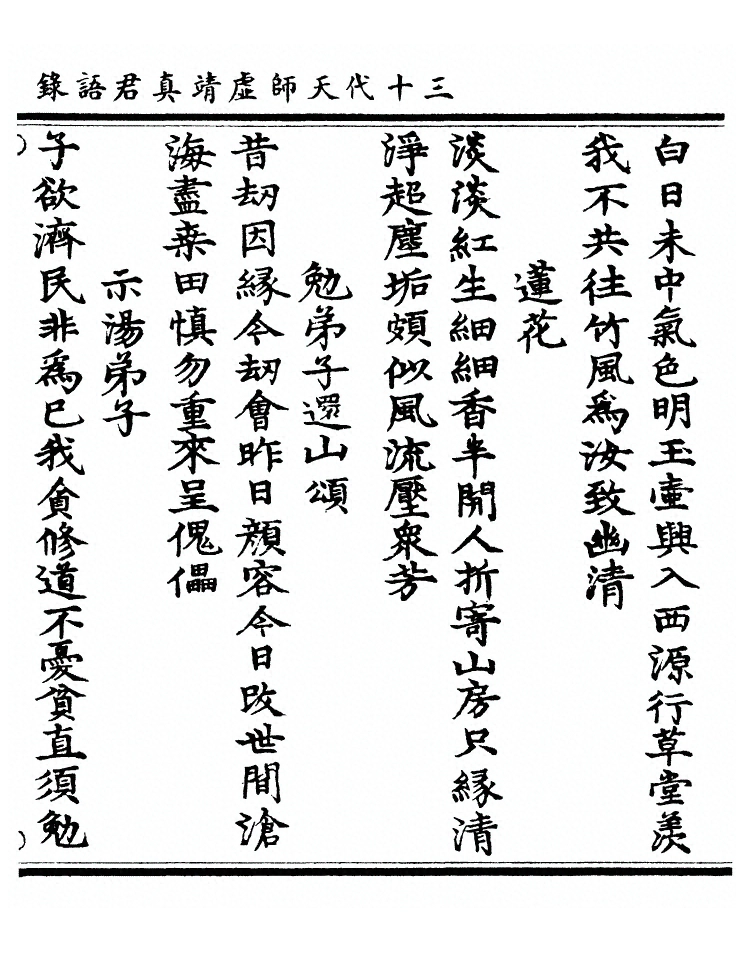 三十代天師虛靖真君語錄
白日未中氣色明玉壺興入西源行草堂羨
我不共往竹風爲汝致幽清
蓮花
淡淡紅生細細香半開人折寄山房只緣清
淨超塵垢頗似風流壓衆芳
勉弟子還山頌
昔劫因緣今劫會昨日顔容今日改世間滄
海盡桒田慎勿重來呈傀儡
示湯弟子
子欲濟民非爲已我貪修道不憂貧直須勉